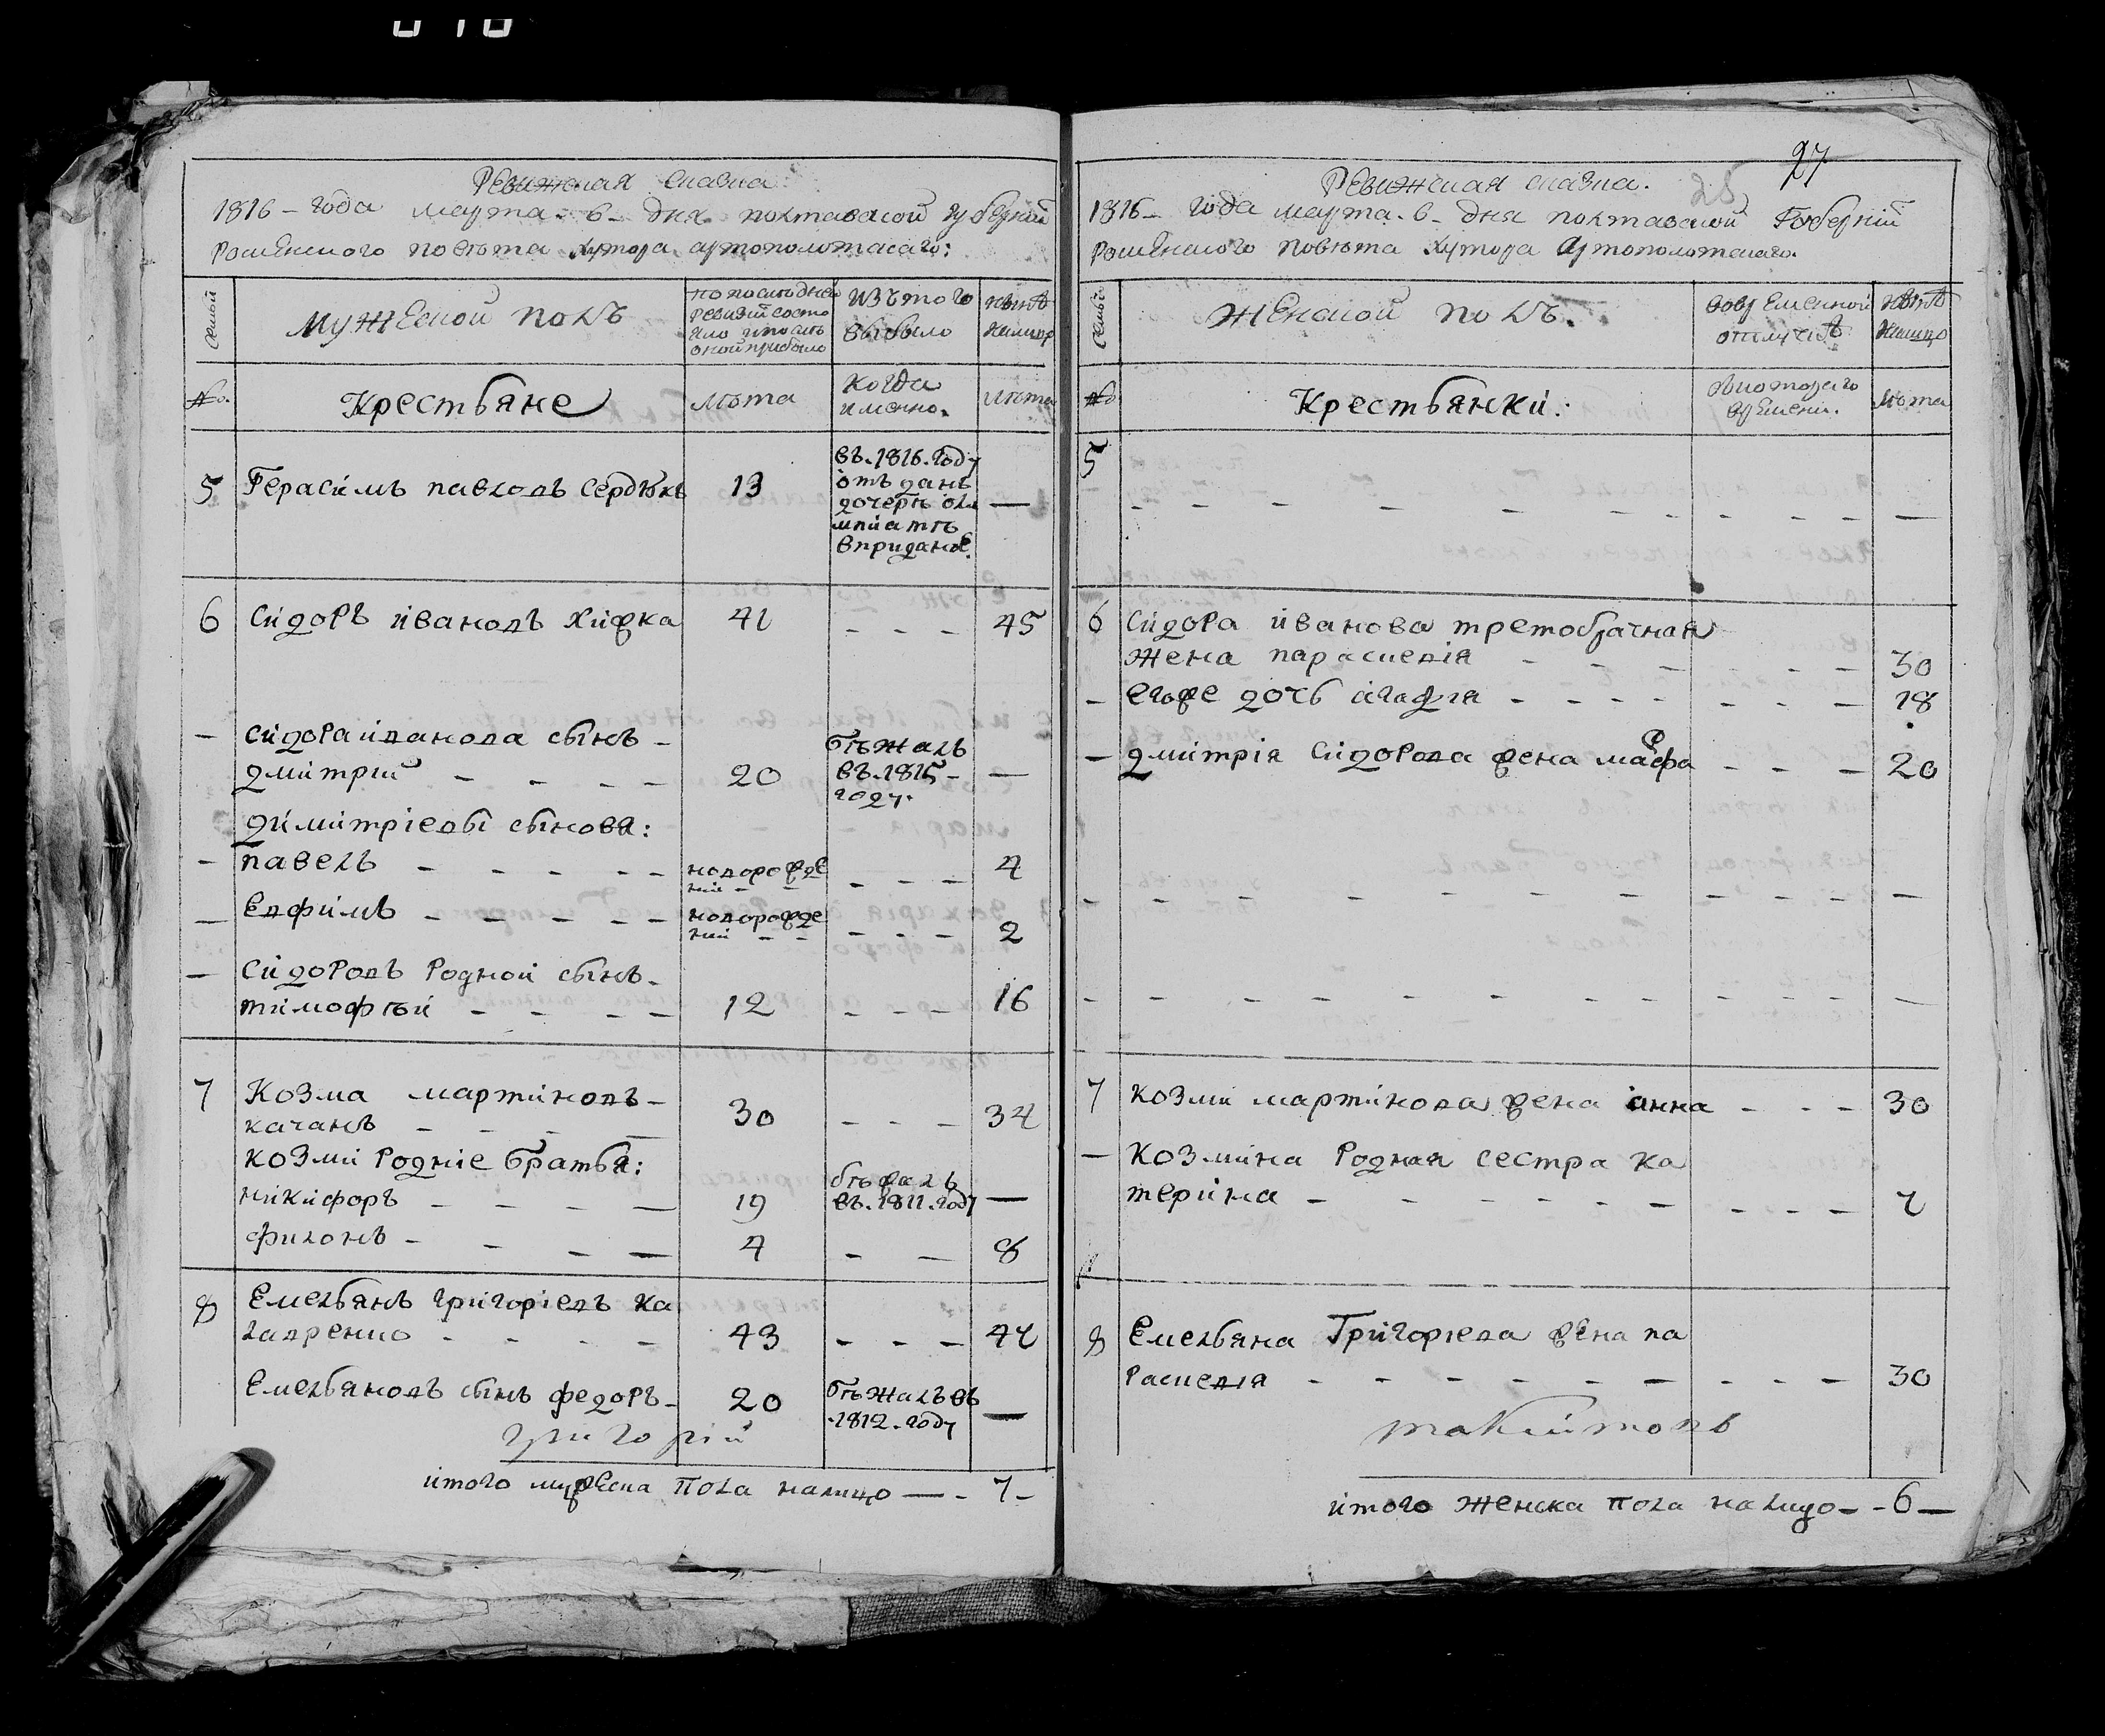 27
25
Ревижская сказка:
1816 – года марта. 6 – дня полтавской губерний
роменского повѣта хутора артополотскаго:
семьи
мужеской полъ
по послѣдней ревизий состояло и послѣ оной прибыло
изъ того выбыло
нынѣ налицо
№.
Крестьяне
лѣта
когда именно.
лѣта
5 Герасимъ павловъ сердюкъ 13
въ. 1816. году
отъ данъ
дочерѣ олимпиатѣ
вприданое. —
6 Сидоръ ивановъ хижка 41 - - - 45
– сидора иванова сынъ –
дмитрий – – – – 20 бѣжалъ въ. 1815 – году. —
димитріевы сыновя:
– павелъ – – – – – новорожденій – – – – – 4
– Евфимъ – – – – – новорожденій – – – – – 2
– Сидоровъ родной сынъ –
тимофѣй – – – – 12 – – – 16
7 Козма мартиновъ –
качанъ – – – – 30 – – – 34
козми родніе братья:
никифоръ – – – – 19 бѣжалъ въ. 1811. году —
филонъ – – – — 4 – — 8
8 Емельянъ григоріевъ ка
лавренко – – – – 43 – – – 47
Емельяновъ сынъ федоръ – 20 бѣжалъ въ
. 1812. году —
григорій
итого мужеска пола налицо — – 7 –
Ревижская сказка.
1816 – года марта. 6 – дня полтавской Губерній
роменского повѣта хутора Артополотского.
семьи
Женской полъ.
вовременной отлучкѣ
нынѣ налицо
№
Крестьянки:
скоторого времени.
лѣта
5 – – – – – – – – – —
6 Сидора иванова третобрачная
жена параскевія – – – – – – 30
– егоже дочь агафія – – – – – – — 18
– дмитрія Сидорова жена марфа – – – 20
– – – – – – – – – – —
– – – – – – – – – – —
7 козми мартинова жена анна – – – 30
– Козмина родная сестра ка
терина – – – – – – – – – – 7
8 Емельяна Григорієва жена па
раскевія – – – – – – – – – – 30
итого женска пола налицо – – 6 —